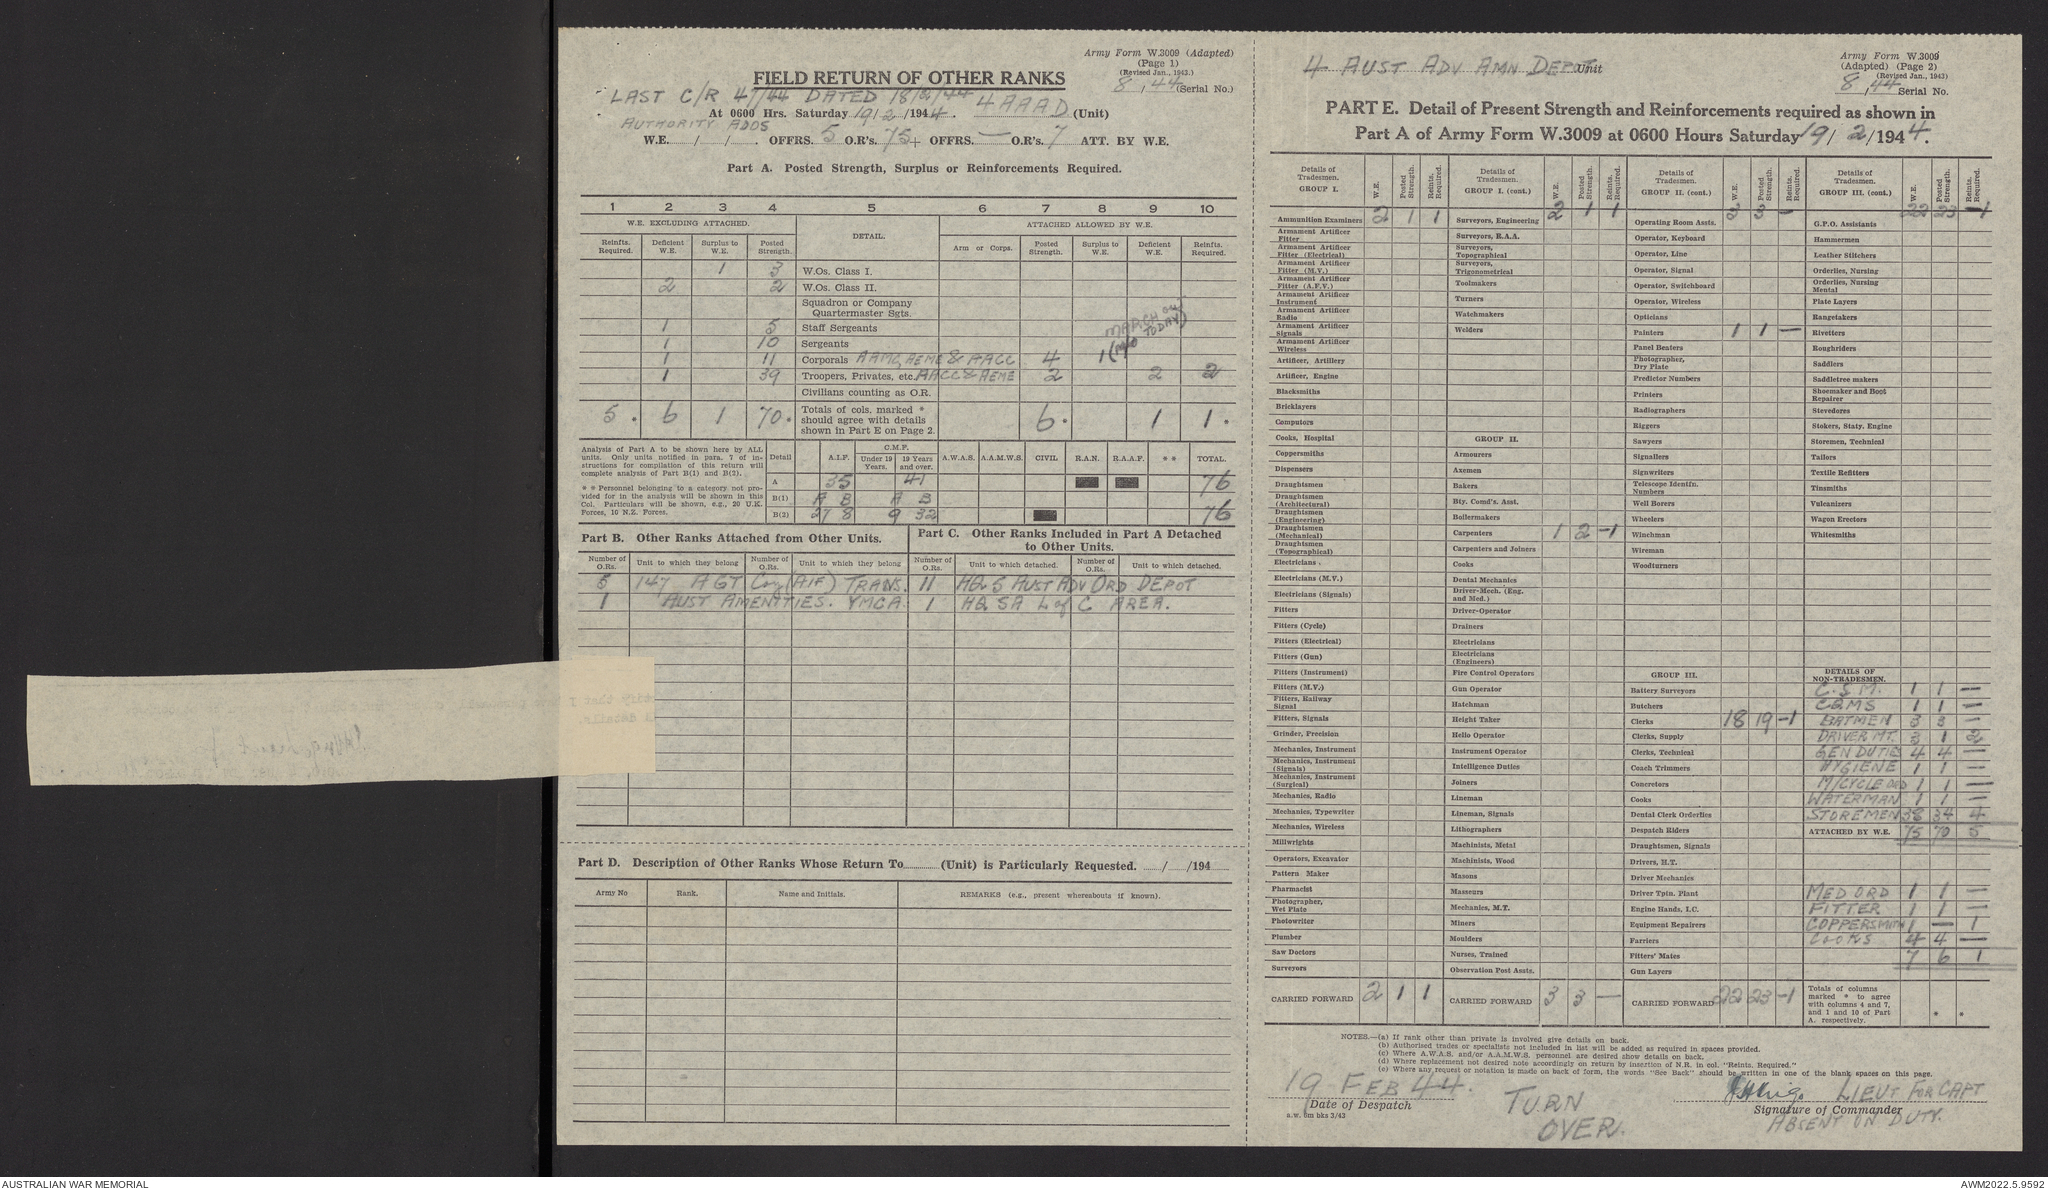 Army Form W.3009 (Adapted)
(Page 1)
(Revised Jan., 1943.)
8, 44 (Serial No.)
FIELD RETURN OF OTHER RANKS
LAST C/R 47/44 DATED 18/2/44
At 0600 Hrs. Saturday 19/2/1944. 4 AAAD (Unit)
AUTHORITY ADOS
W.E. / / . OFFRS. 5 O.R's. 75 + OFFRS. — O.R's. 7 ATT. BY W.E.
Part A. Posted Strength, Surplus or Reinforcements Required.
1 2 3 4 5 6 7 8 9 10
W.E. EXCLUDING ATTACHED. DETAIL. ATTACHED ALLOWED BY W.E.
Reinfts. Required. Deficient W.E. Surplus to W.E. Posted Strength. Arm or Corps. Posted Strength. Surplus to W.E. Deficient W.E. Reinfts. Required.
1 3 W.Os. Class I.
2 2 W.Os. Class II.
Squadron or Company Quartermaster Sgts.
1 5 Staff Sergeants
MARCH OUT TODAY)
1 10 Sergeants
1 11 Corporals AAMC, AEME & AACC 4 1 (M/O
1 39 Troopers, Privates, etc. AACC & AEME 2 2 2
Civilians counting as O.R.
5 * 6 1 70 * Totals of cols. marked * should agree with details shown in Part E on Page 2. 6 * 1 1 *
Analysis of Part A to be shown here by ALL units. Only units notified in para. 7 of instructions for compilation of this return will complete analysis of Part B(1) and B(2).
* * Personnel belonging to a category not provided for in the analysis will be shown in this Col. Particulars will be shown, e.g., 20 U.K. Forces, 10 N.Z. Forces.
Detail A.I.F. C.M.F. Under 19 Years. 19 Years and over. A.W.A.S. A.A.M.W.S. CIVIL R.A.N. R.A.A.F. * * TOTAL.
A 35 41 76
B(1) A B A B
B(2) 27 8 9 32 76
Part B. Other Ranks Attached from Other Units.
Part C. Other Ranks Included in Part A Detached to Other Units.
Number of O.Rs. Unit to which they belong Number of O.Rs. Unit to which they belong Number of O.Rs. Unit to which detached. Number of O.Rs. Unit to which detached.
5 147 AGT Coy (AIF) TRANS. 11 HQ 5 AUST ADV ORD DEPOT
1 AUST AMENITIES. YMCA. 1 HQ SA L of C AREA.
Part D. Description of Other Ranks Whose Return To (Unit) is Particularly Requested. / /194
Army No Rank. Name and Initials. REMARKS (e.g., present whereabouts if known).
4 AUST ADV AMN DEPOT Unit
Army Form W.3009
(Adapted) (Page 2)
(Revised Jan., 1943)
8, 44 Serial No.
PART E. Detail of Present Strength and Reinforcements required as shown in
Part A of Army Form W.3009 at 0600 Hours Saturday 19/ 2/1944.
Details of Tradesmen. GROUP I. W.E. Posted Strength. Reinfts. Required.
Ammunition Examiners 2 1 1
Armament Artificer Fitter
Armament Artificer Fitter (Electrical)
Armament Artificer Fitter (M.V.)
Armament Artificer Fitter (A.F.V.)
Armament Artificer Instrument
Armament Artificer Radio
Armament Artificer Signals
Armament Artificer Wireless
Artificer, Artillery
Artificer, Engine
Blacksmiths
Bricklayers
Computors
Cooks, Hospital
Coppersmiths
Dispensers
Draughtsmen
Draughtsmen (Architectural)
Draughtsmen (Engineering)
Draughtsmen (Mechanical)
Draughtsmen (Topographical)
Electricians
Electricians (M.V.)
Electricians (Signals)
Fitters
Fitters (Cycle)
Fitters (Electrical)
Fitters (Gun)
Fitters (Instrument)
Fitters (M.V.)
Fitters, Railway Signal
Fitters, Signals
Grinder, Precision
Mechanics, Instrument
Mechanics, Instrument (Signals)
Mechanics, Instrument (Surgical)
Mechanics, Radio
Mechanics, Typewriter
Mechanics, Wireless
Millwrights
Operators, Excavator
Pattern Maker
Pharmacist
Photographer, Wet Plate
Photowriter
Plumber
Saw Doctors
Surveyors
CARRIED FORWARD 2 1 1
Details of Tradesmen. GROUP I. (cont.) W.E. Posted Strength. Reinfts. Required.
2 1 1
Surveyors, Engineering
Surveyors, R.A.A.
Surveyors, Topographical
Surveyors, Trigonometrical
Toolmakers
Turners
Watchmakers
Welders
GROUP II.
Armourers
Axemen
Bakers
Bty. Comd's. Asst.
Boilermakers
Carpenters 1 2 -1
Carpenters and Joiners
Cooks
Dental Mechanics
Driver-Mech. (Eng. and Med.)
Driver-Operator
Drainers
Electricians
Electricians (Engineers)
Fire Control Operators
Gun Operator
Hatchman
Height Taker
Hello Operator
Instrument Operator
Intelligence Duties
Joiners
Lineman
Lineman, Signals
Lithographers
Machinists, Metal
Machinists, Wood
Masons
Masseurs
Mechanics, M.T.
Miners
Moulders
Nurses, Trained
Observation Post Assts.
CARRIED FORWARD 3 3 —
Details of Tradesmen. GROUP II. (cont.) W.E. Posted Strength. Reinfts. Required.
3 3 —
Operating Room Assts.
Operator, Keyboard
Operator, Line
Operator, Signal
Operator, Switchboard
Operator, Wireless
Opticians
Painters 1 1 —
Panel Beaters
Photographer, Dry Plate
Predictor Numbers
Printers
Radiographers
Riggers
Sawyers
Signallers
Signwriters
Telescope Identfn. Numbers
Well Borers
Wheelers
Winchman
Wireman
Woodturners
GROUP III.
Battery Surveyors
Butchers
Clerks 18 19 -1
Clerks, Supply
Clerks, Technical
Coach Trimmers
Concretors
Cooks
Dental Clerk Orderlies
Despatch Riders
Draughtsmen, Signals
Drivers, H.T.
Driver Mechanics
Driver Tptn. Plant
Engine Hands, I.C.
Equipment Repairers
Farriers
Fitters' Mates
Gun Layers
CARRIED FORWARD 22 23 -1
Details of Tradesmen. GROUP III. (cont.) W.E. Posted Strength. Reinfts. Required.
22 23 -1
G.P.O. Assistants
Hammermen
Leather Stitchers
Orderlies, Nursing
Orderlies, Nursing Mental
Plate Layers
Rangetakers
Rivetters
Roughriders
Saddlers
Saddletree makers
Shoemaker and Boot Repairer
Stevedores
Stokers, Staty. Engine
Storemen, Technical
Tailors
Textile Refitters
Tinsmiths
Vulcanizers
Wagon Erectors
Whitesmiths
DETAILS OF NON-TRADESMEN.
C.S.M. 1 1 —
CQMS 1 1 —
BATMEN 3 3 —
DRIVER MT. 3 1 2
GEN DUTIES 4 4 —
HYGIENE 1 1 —
M/CYCLE ORD 1 1 —
WATERMAN 1 1 —
STOREMEN 38 34 4
ATTACHED BY W.E. 75 70 5
MED ORD 1 1 —
FITTER 1 1 —
COPPERSMITH 1 — 1
COOKS 4 4 —
7 6 1
Totals of columns marked * to agree with columns 4 and 7, and 1 and 10 of Part A. respectively. * *
NOTES.—(a) If rank other than private is involved give details on back.
(b) Authorised trades or specialists not included in list will be added as required in spaces provided.
(c) Where A.W.A.S. and/or A.A.M.W.S. personnel are desired show details on back.
(d) Where replacement not desired note accordingly on return by insertion of N.R. in col. "Reints. Required."
(e) Where any request or notation is made on back of form, the words "See Back" should be written in one of the blank spaces on this page.
19 FEB 44.
Date of Despatch
a.w. 6m bks 3/43
TURN
OVER.
LIEUT FOR CAPT
Signature of Commander
ABSENT ON DUTY.
AUSTRALIAN WAR MEMORIAL
AWM2022.5.9592